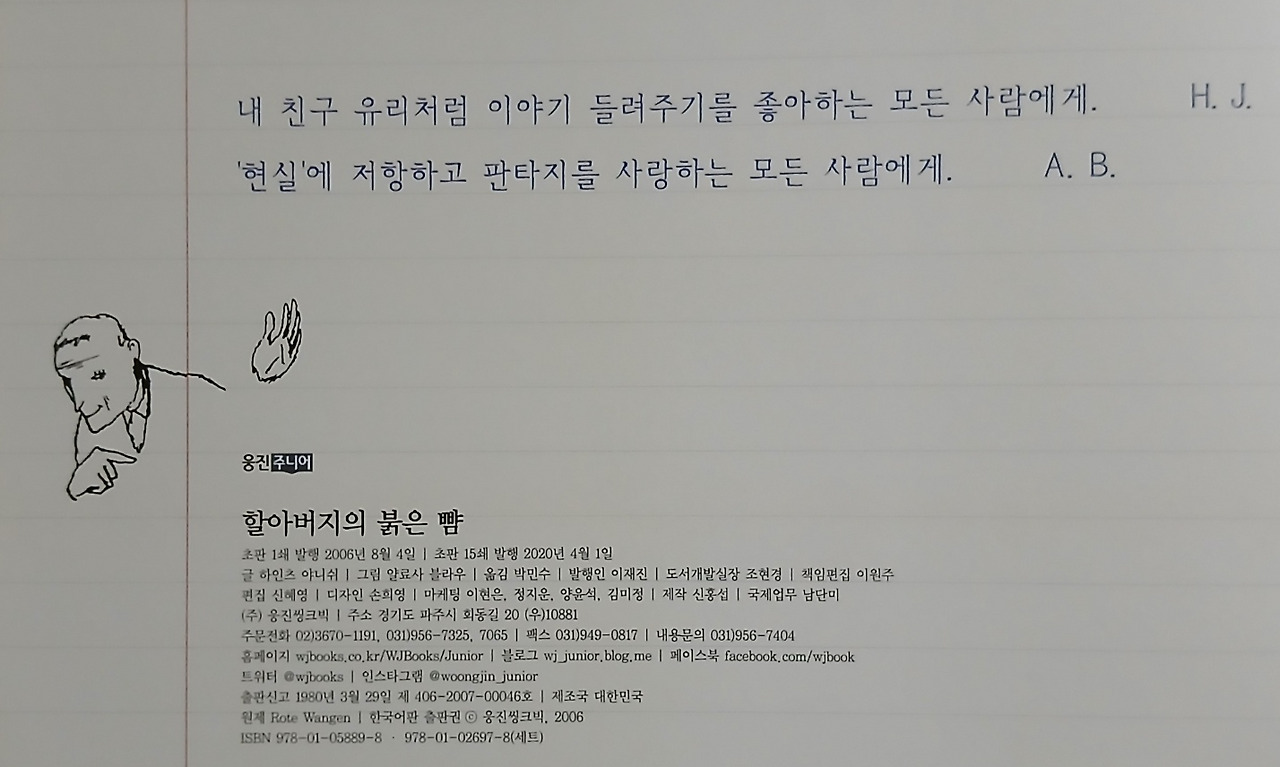 내 친구 유리처럼 이야기 들려주기를 좋아하는 모든 사람에게. H. J.
'현실'에 저항하고 판타지를 사랑하는 모든 사람에게. A. B.
웅진주니어
할아버지의 붉은 뺨
초판 1쇄 발행 2006년 8월 4일 | 초판 15쇄 발행 2020년 4월 1일
글 하인츠 야니쉬 | 그림 알료사 블라우 | 옮김 박민수 | 발행인 이재진 | 도서개발실장 조현경 | 책임편집 이원주
편집 신혜영 | 디자인 손희영 | 마케팅 이현은, 정지운, 양윤석, 김미정 | 제작 신홍섭 | 국제업무 남단미
(주) 웅진씽크빅 | 주소 경기도 파주시 회동길 20 (우)10881
주문전화 02)3670-1191, 031)956-7325, 7065 | 팩스 031)949-0817 | 내용문의 031)956-7404
홈페이지 wjbooks.co.kr/WJBooks/Junior | 블로그 wj_junior.blog.me | 페이스북 facebook.com/wjbook
트위터 @wjbooks | 인스타그램 @woongjin_junior
출판신고 1980년 3월 29일 제 406-2007-00046호 | 제조국 대한민국
원제 Rote Wangen | 한국어판 출판권 ⓒ 웅진씽크빅, 2006
ISBN 978-01-05889-8 · 978-01-02697-8(세트)